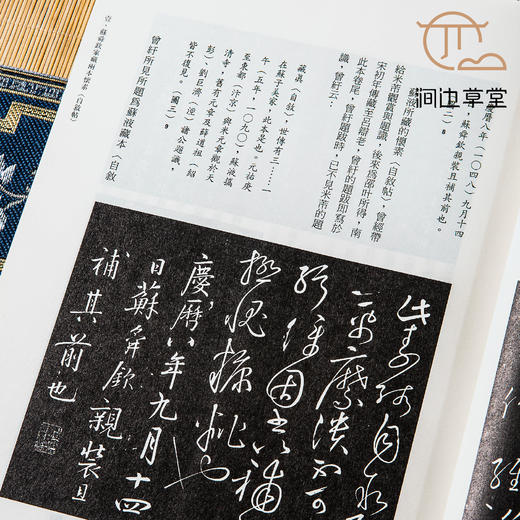 涧边草堂
曆八年(一〇四八)九月十四
蘇舜欽親裝且補其前也。
二)8
蘇液所藏的懷素〈自敘帖〉,曾經帶
給米芾觀賞與題識,後來為邵叶所得,南
宋初年傳藏至呂辯老,曾紆的題跋即寫於
此本卷尾,曾紆題跋時,已不見米芾的題
識,曾紆云:
藏真〈自敘〉,世傳有三……一
在蘇子美家,此本是也。元祐庚
午(五年,一〇九〇),蘇液攜
至東都(汴京),與米元章觀於天
清寺,舊有元章及薛道祖(紹
彭)、劉巨濟(涇)諸公題識,
皆不復見。(圖三)9
曾紆所見所題為蘇液藏本〈自敘
壹·蘇舜欽家藏兩本懷素〈自敘帖〉
此素師自
一紙糜潰不可
綴緝因書補
極愧糠粃也
慶曆八年九月十四
日蘇舜欽親裝且
補其前也